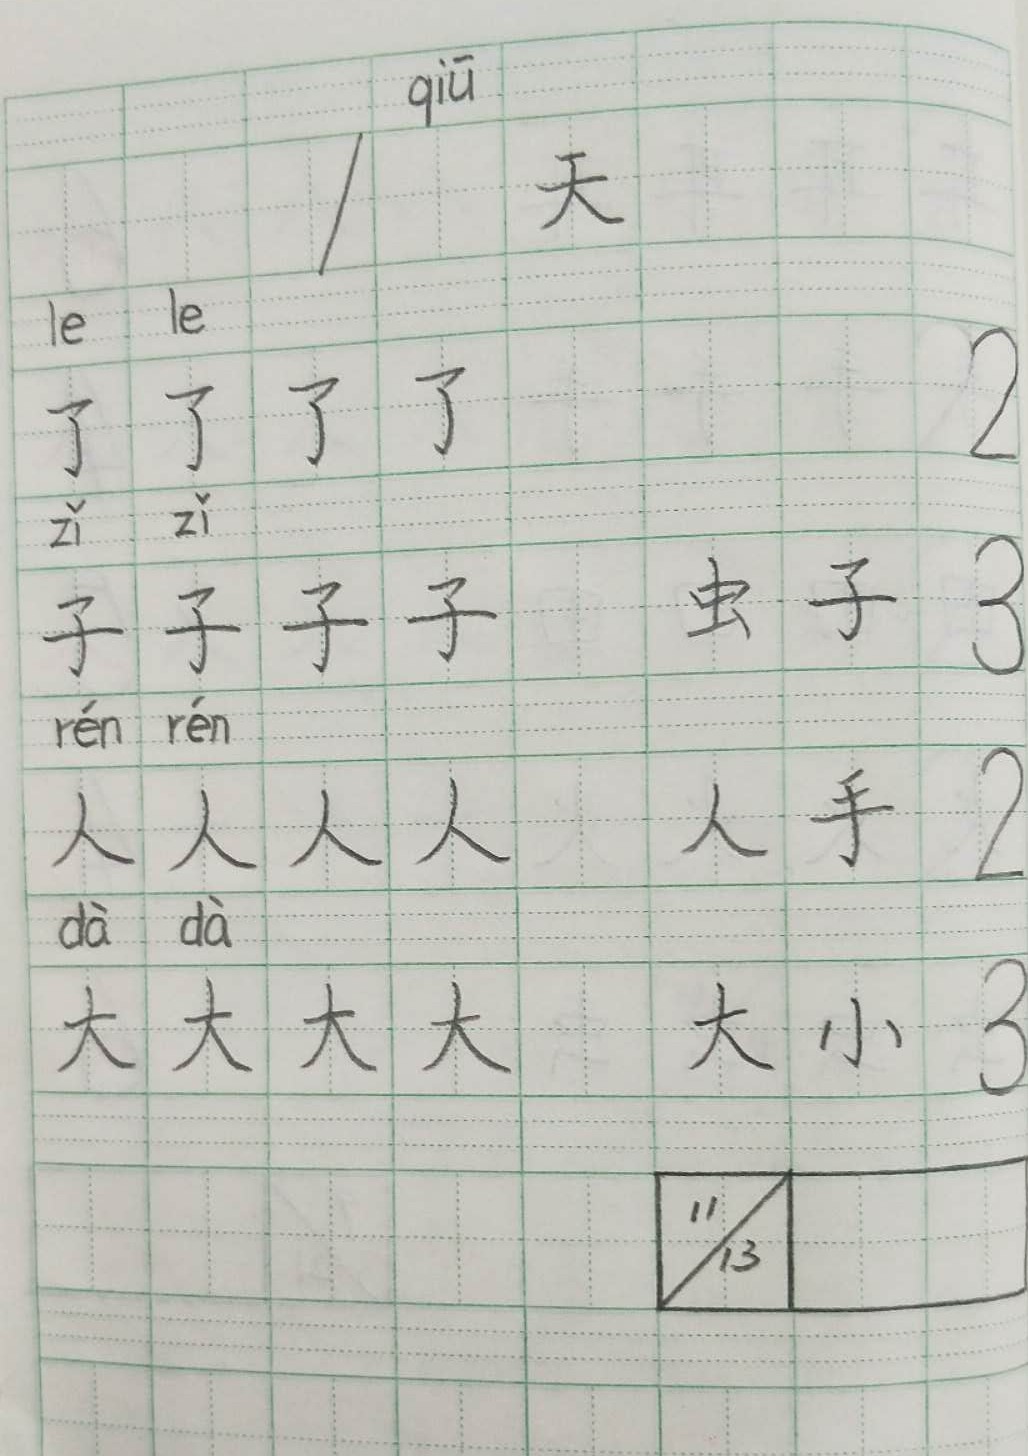 qiū
/ 天
le le
了 了 了 了 2
zǐ zǐ
子 子 子 子 虫 子 3
rén rén
人 人 人 人 人 手 2
dà dà
大 大 大 大 大 小 3
11/13